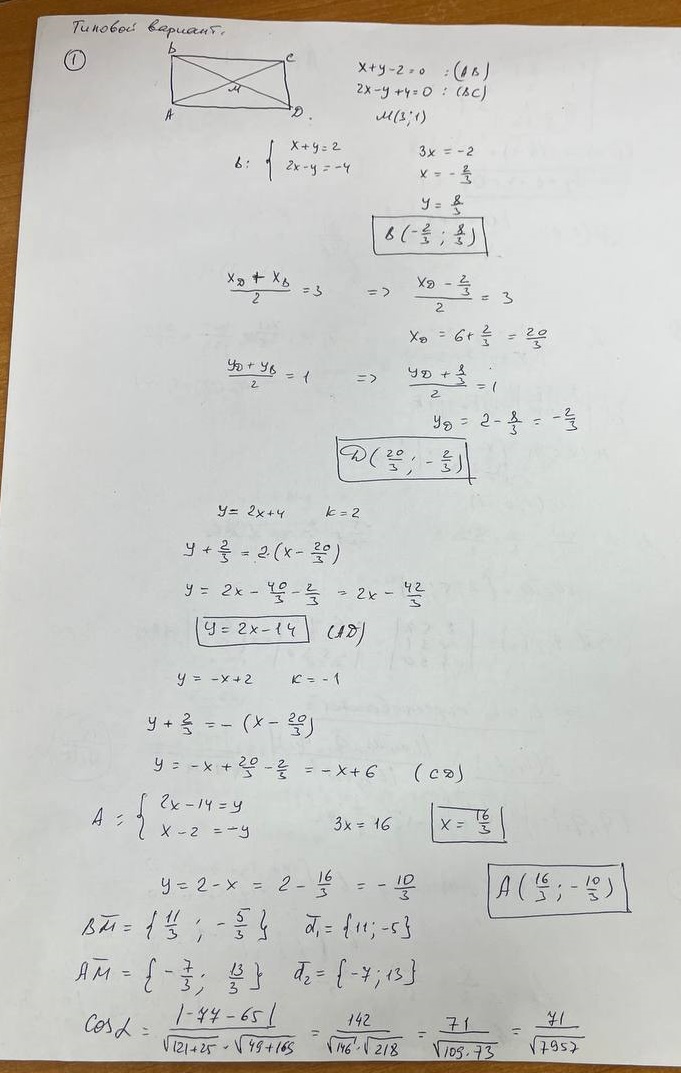 Типовой вариант.
1
B C
M
A D
x+y-2=0 : (AB)
2x-y+4=0 : (BC)
M(3;1)
B: { x+y=2
2x-y=-4
3x = -2
x = -2/3
y = 8/3
B(-2/3 ; 8/3)
(x_D + x_B)/2 = 3 => (x_D - 2/3)/2 = 3
x_D = 6+2/3 = 20/3
(y_D + y_B)/2 = 1 => (y_D + 8/3)/2 = 1
y_D = 2 - 8/3 = -2/3
D(20/3 ; -2/3)
y = 2x+4 k=2
y + 2/3 = 2·(x - 20/3)
y = 2x - 40/3 - 2/3 = 2x - 42/3
y = 2x-14 (AD)
y = -x+2 k=-1
y + 2/3 = - (x - 20/3)
y = -x + 20/3 - 2/3 = -x+6 (CD)
A: { 2x-14=y
x-2 = -y
3x = 16 x = 16/3
y = 2-x = 2 - 16/3 = -10/3 A(16/3 ; -10/3)
B̅M̅ = {11/3 ; -5/3} d̅₁ = {11; -5}
A̅M̅ = {-7/3 ; 13/3} d̅₂ = {-7; 13}
Cosα = |-77-65|/(√(121+25) · √(49+169)) = 142/(√146 · √218) = 71/√(109·73) = 71/√7957